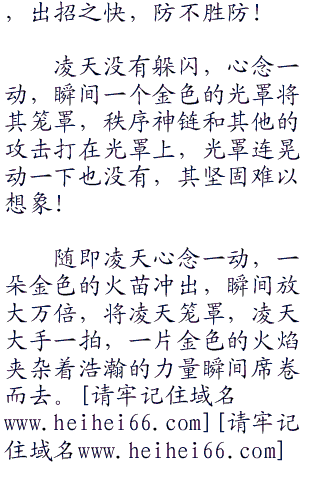 ，出招之快，防不胜防！
凌天没有躲闪，心念一
动，瞬间一个金色的光罩将
其笼罩，秩序神链和其他的
攻击打在光罩上，光罩连晃
动一下也没有，其坚固难以
想象！
随即凌天心念一动，一
朵金色的火苗冲出，瞬间放
大万倍，将凌天笼罩，凌天
大手一拍，一片金色的火焰
夹杂着浩瀚的力量瞬间席卷
而去。[请牢记住域名
www.heihei66.com][请牢记
住域名www.heihei66.com]